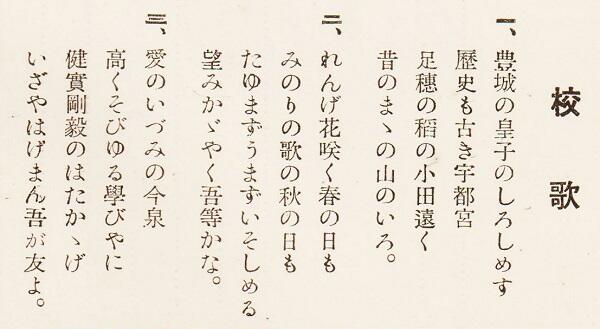 校歌
一、豊城の皇子のしろしめす
歴史も古き宇都宮
足穂の稲の小田遠く
昔のまゝの山のいろ。
二、れんげ花咲く春の日も
みのりの歌の秋の日も
たゆまずうまずいそしめる
望みかゞやく吾等かな。
三、愛のいづみの今泉
高くそびゆる學びやに
健實剛毅のはたかゝげ
いざやはげまん吾が友よ。